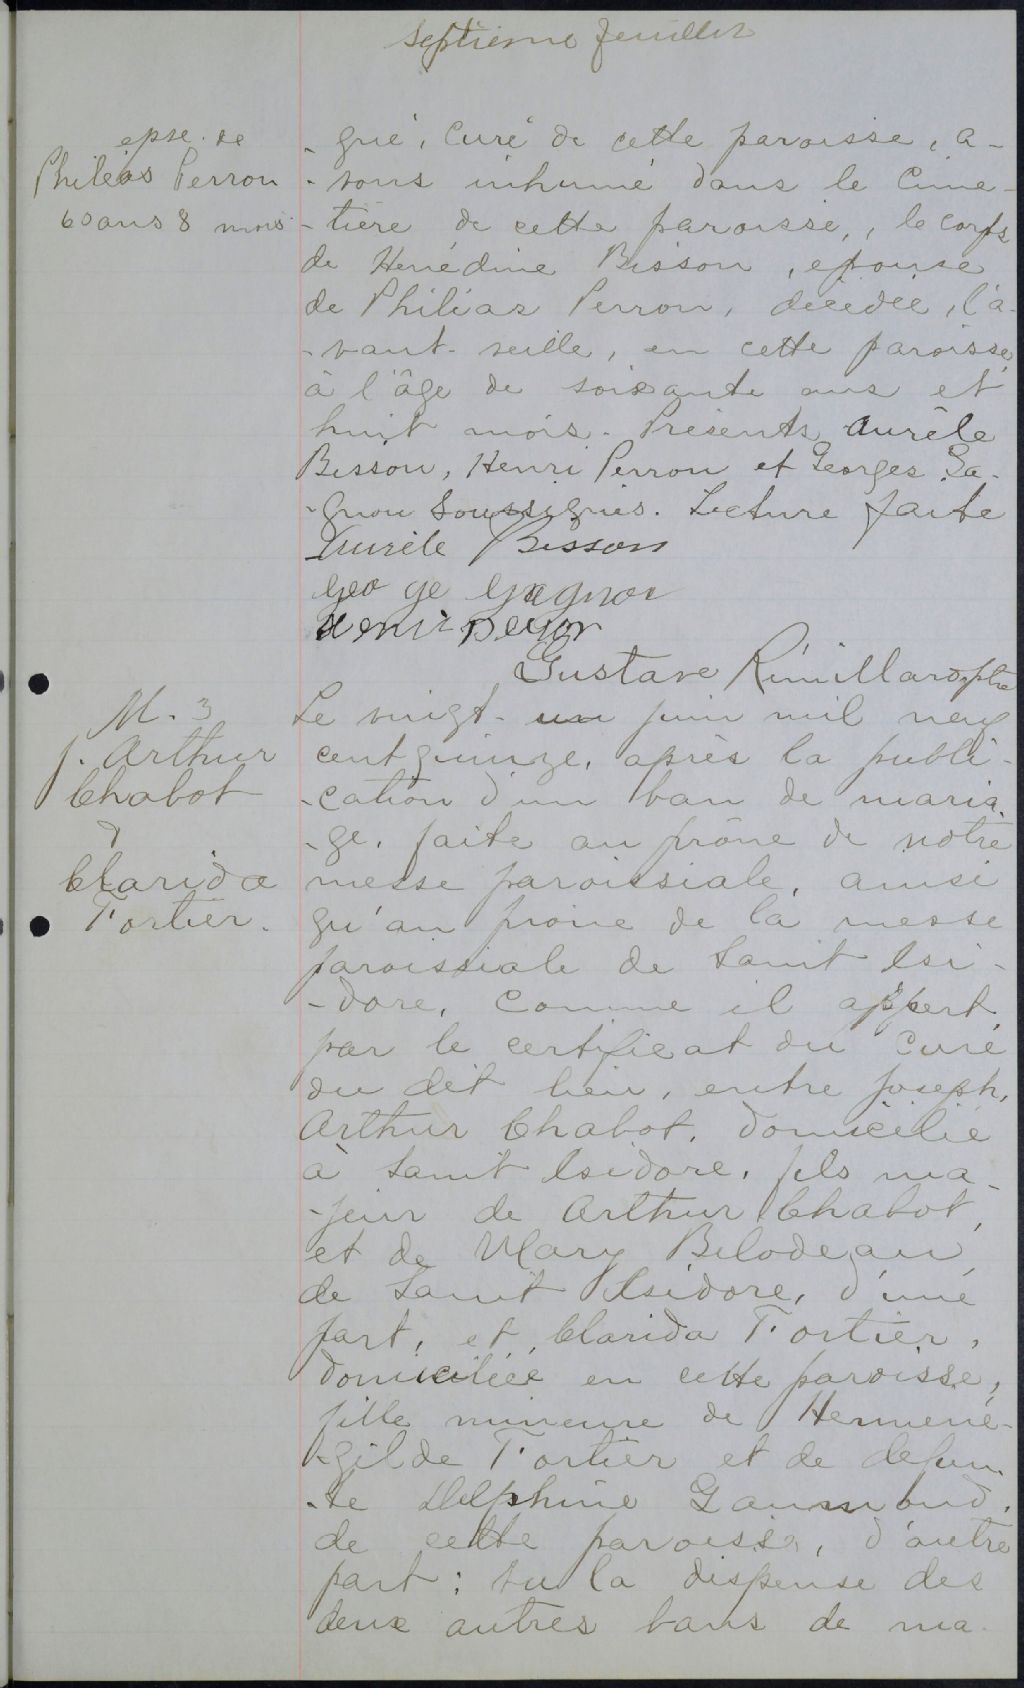 septième feuillet
epse. de
Philéas Perron
60 ans 8 mois
- gné, Curé de cette paroisse, a-
- vons inhumé dans le Cime-
- tière de cette paroisse, , le corps
de Henédine Bisson, épouse
de Philéas Perron, décédée, l'a-
- vant-veille, en cette paroisse,
à l'âge de soixante ans et
huit mois. Présents Aurèle
Bisson, Henri Perron et Georges Ga-
- gnon Soussignés. Lecture faite
Aurèle Bisson
George Gagnon
Henri Perron
Gustave Rémillard ptre
M. 3
J. Arthur
Chabot
&
Clarida
Fortier.
Le vingt-un juin mil neuf
cent quinze, après la publi-
- cation d'un ban de maria-
- ge, faite au prône de notre
messe paroissiale, ainsi
qu'au prône de la messe
paroissiale de Saint Isi-
- dore, Comme il appert
par le certificat du Curé
du dit lieu, entre Joseph,
Arthur Chabot, domicilié
à Saint Isidore, fils ma-
- jeur de Arthur Chabot,
et de Mary Bilodeau,
de Saint Isidore, d'une
part, et Clarida Fortier,
domiciliée en cette paroisse,
fille mineure de Hermené-
- gilde Fortier et de défun-
- te Delphine
de cette paroisse, d'autre
part; vu la dispense des
deux autres bans de ma-